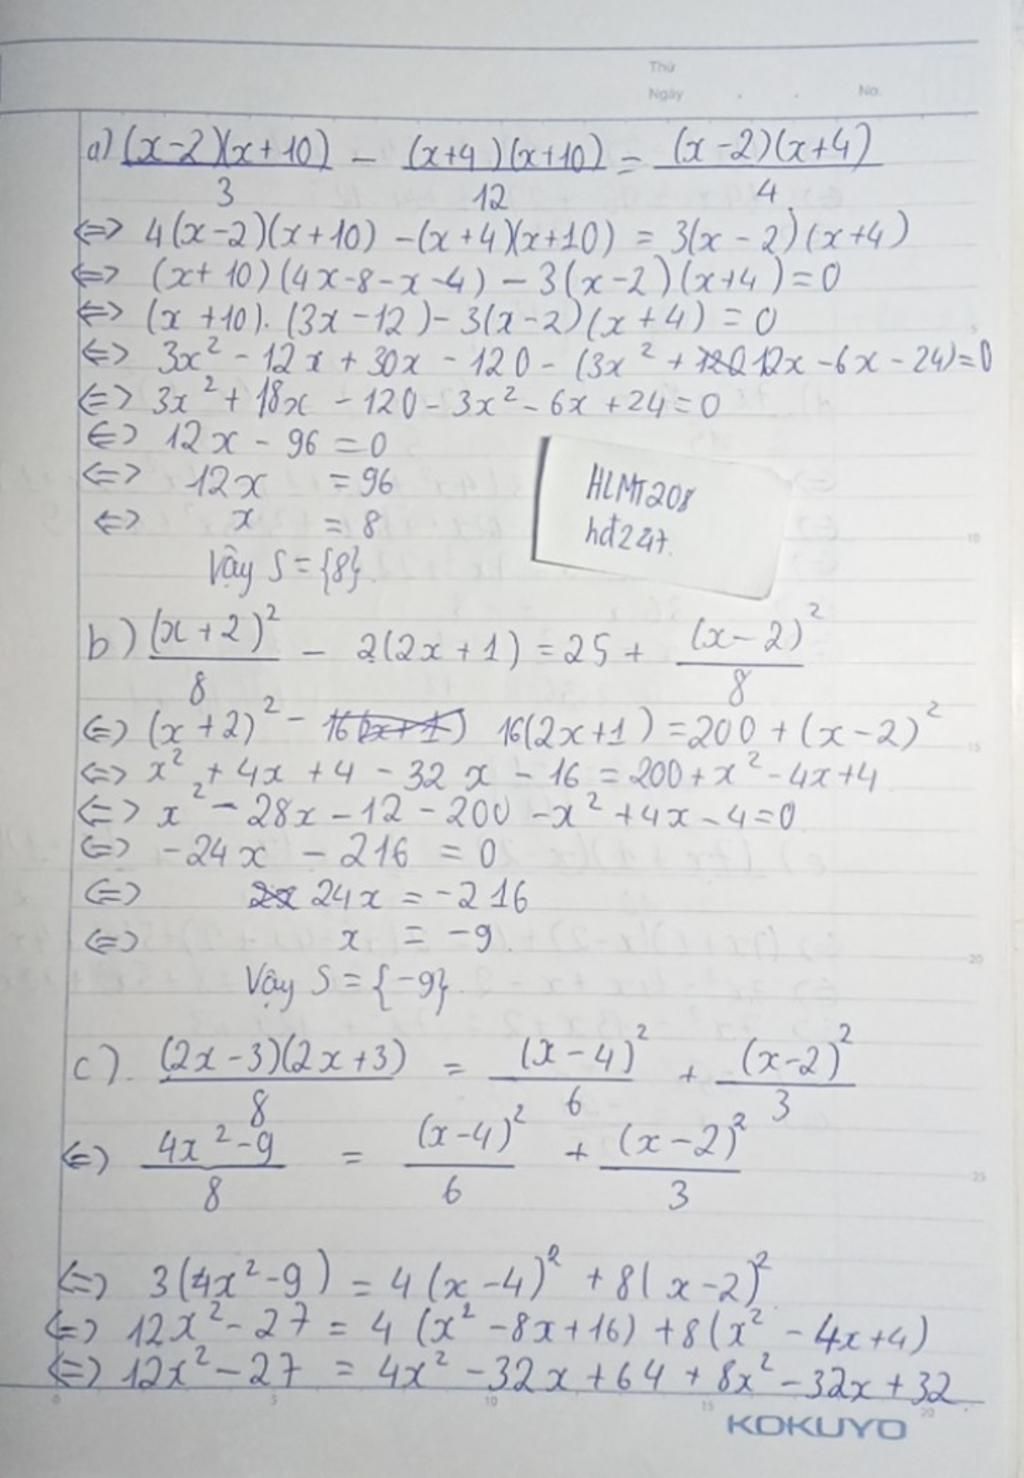 Thứ
Ngày . . No.
a) (x-2)(x+10)/3 - (x+4)(x+10)/12 = (x-2)(x+4)/4
<=> 4(x-2)(x+10) -(x+4)(x+10) = 3(x-2)(x+4)
<=> (x+10)(4x-8-x-4) - 3(x-2)(x+4)=0
<=> (x+10).(3x-12)-3(x-2)(x+4) = 0
<=> 3x² - 12x + 30x - 120 - (3x² + 12x - 6x - 24)=0
<=> 3x² + 18x - 120 - 3x² - 6x + 24 = 0
<=> 12x - 96 = 0
<=> 12x = 96
<=> x = 8
Vậy S = {8}.
HLMT208
hđ247.
b) (x+2)²/8 - 2(2x+1) = 25 + (x-2)²/8
<=> (x+2)² - 16(2x+1) = 200 + (x-2)²
<=> x² + 4x + 4 - 32x - 16 = 200 + x² - 4x + 4
<=> x² - 28x - 12 - 200 - x² + 4x - 4 = 0
<=> -24x - 216 = 0
<=> 24x = -216
<=> x = -9.
Vậy S = {-9}.
c). (2x-3)(2x+3)/8 = (x-4)²/6 + (x-2)²/3
<=> 4x²-9/8 = (x-4)²/6 + (x-2)²/3
<=> 3(4x²-9) = 4(x-4)² + 8(x-2)²
<=> 12x² - 27 = 4(x² - 8x + 16) + 8(x² - 4x + 4)
<=> 12x² - 27 = 4x² - 32x + 64 + 8x² - 32x + 32
0 5 10 15 20
KOKUYO